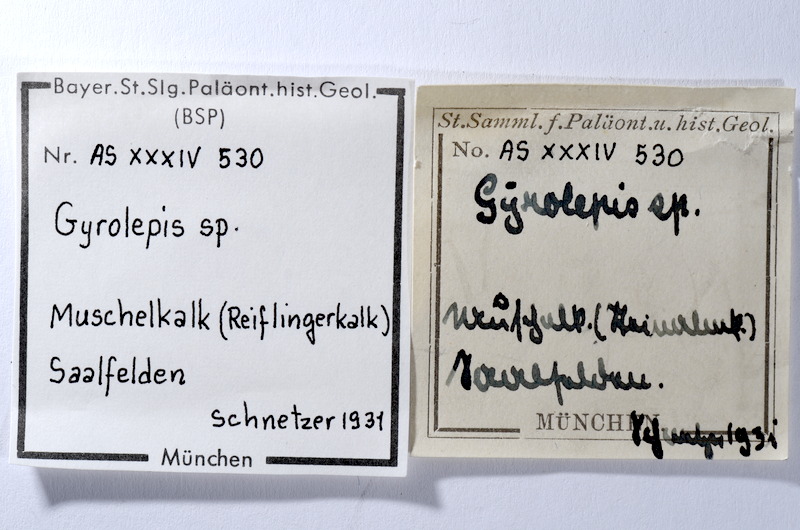 Bayer.St.Slg.Paläont.hist.Geol.
(BSP)
Nr. AS XXXIV 530
Gyrolepis sp.
Muschelkalk (Reiflingerkalk)
Saalfelden
Schnetzer 1931
München
St.Samml.f.Paläont.u.hist.Geol.
No. AS XXXIV 530
Gyrolepis sp.
Saalfelden.
MÜNCHEN
1931